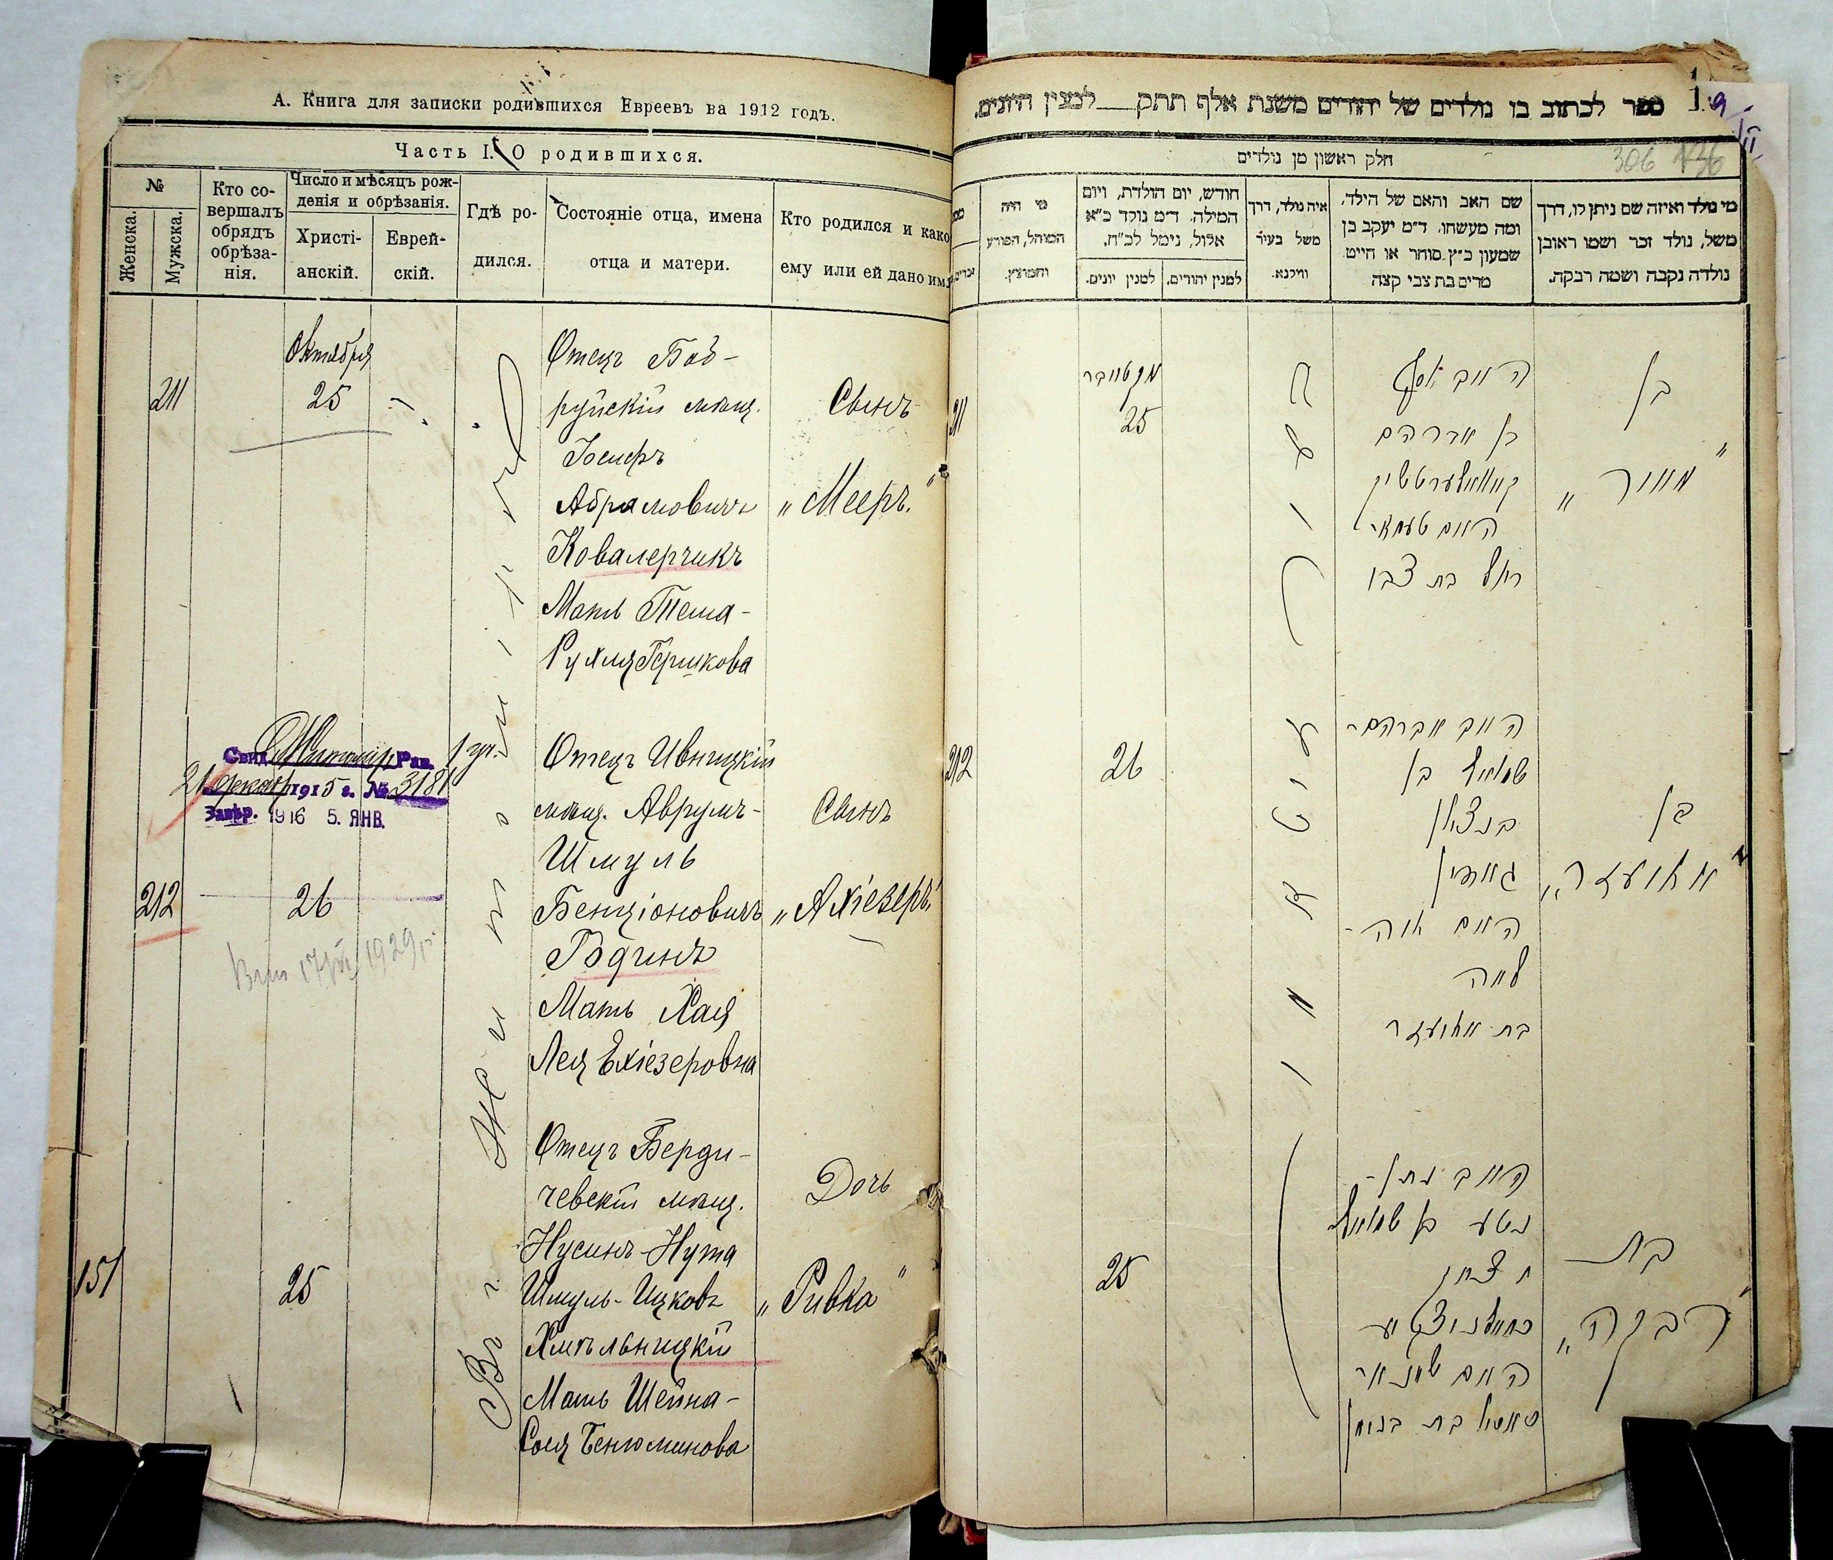 А. Книга для записки родившихся Евреевъ на 1912 годъ.
Часть I. О родившихся.
№
Женска.
Мужска.
Кто со-
вершалъ
обрядъ
обрѣза-
нія.
Число и мѣсяцъ рож-
денія и обрѣзанія.
Христі-
анскій.
Еврей-
скій.
Гдѣ ро-
дился.
Состояніе отца, имена
отца и матери.
Кто родился и како
ему или ей дано им
211
Октября
25
Отецъ Боб-
руйскій мѣщ.
Іосифъ
Абрамовичъ
Ковалерчикъ
Мать Тема-
Рухля Гершкова
Сынъ
„Мееръ."
Въ г. Житомірѣ
Свид. Житомір Рав.
1915 г. № 3181
Завѣр. 1916 5. ЯНВ.
212
26
Отецъ Ивницкій
мѣщ. Аврумъ-
Шмуль
Бенціоновичъ
Годинъ
Мать Хая
Лея Ехіезеровна
Сынъ
„Ахіезеръ"
151
25
Отецъ Берди-
чевскій мѣщ.
Нусинъ-Нута
Шмуль-Ицковъ
Хмѣльницкій
Мать Шейна-
Сося Бенюминова
Дочь
„Ривка"
ספר לכתוב בו נולדים של יהודים משנת אלף תתק למנין היונים.
306
חלק ראשון מן נולדים
מי נולד ואיזה שם ניתן לו, דרך
משל, נולד זכר ושמו ראובן
נולדה נקבה ושמה רבקה.
שם האב והאם של הילד,
ומה מעשהו. ד״מ יעקב בן
שמעון כ״ץ סוחר או חייט
מרים בת צבי קצה
איה נולד, דרך
משל בעיר
ווילנא.
חודש, יום הולדת, ויום
המילה. ד״מ נולד כ״א
אלול, נימל לכ״ח.
למנין יהודים.
למנין יונים.
מי היה
המוהל, הפורע
והמוצץ.
211
אקטובר
25
האב יוסף
בן אברהם
קאוואלערטשיק
האם טעמא-
רחל בת צבי
בן
„מאיר"
212
26
האב אברהם-
שמואל בן
בנציון
גאדין
האם חיה-
לאה
בת אחיעזר
בן
„אחיעזר"
25
האב נתן-
נטע בן שמואל
יצחק
האם שיינא-
סאסיל בת בנימין
בת
„רבקה"